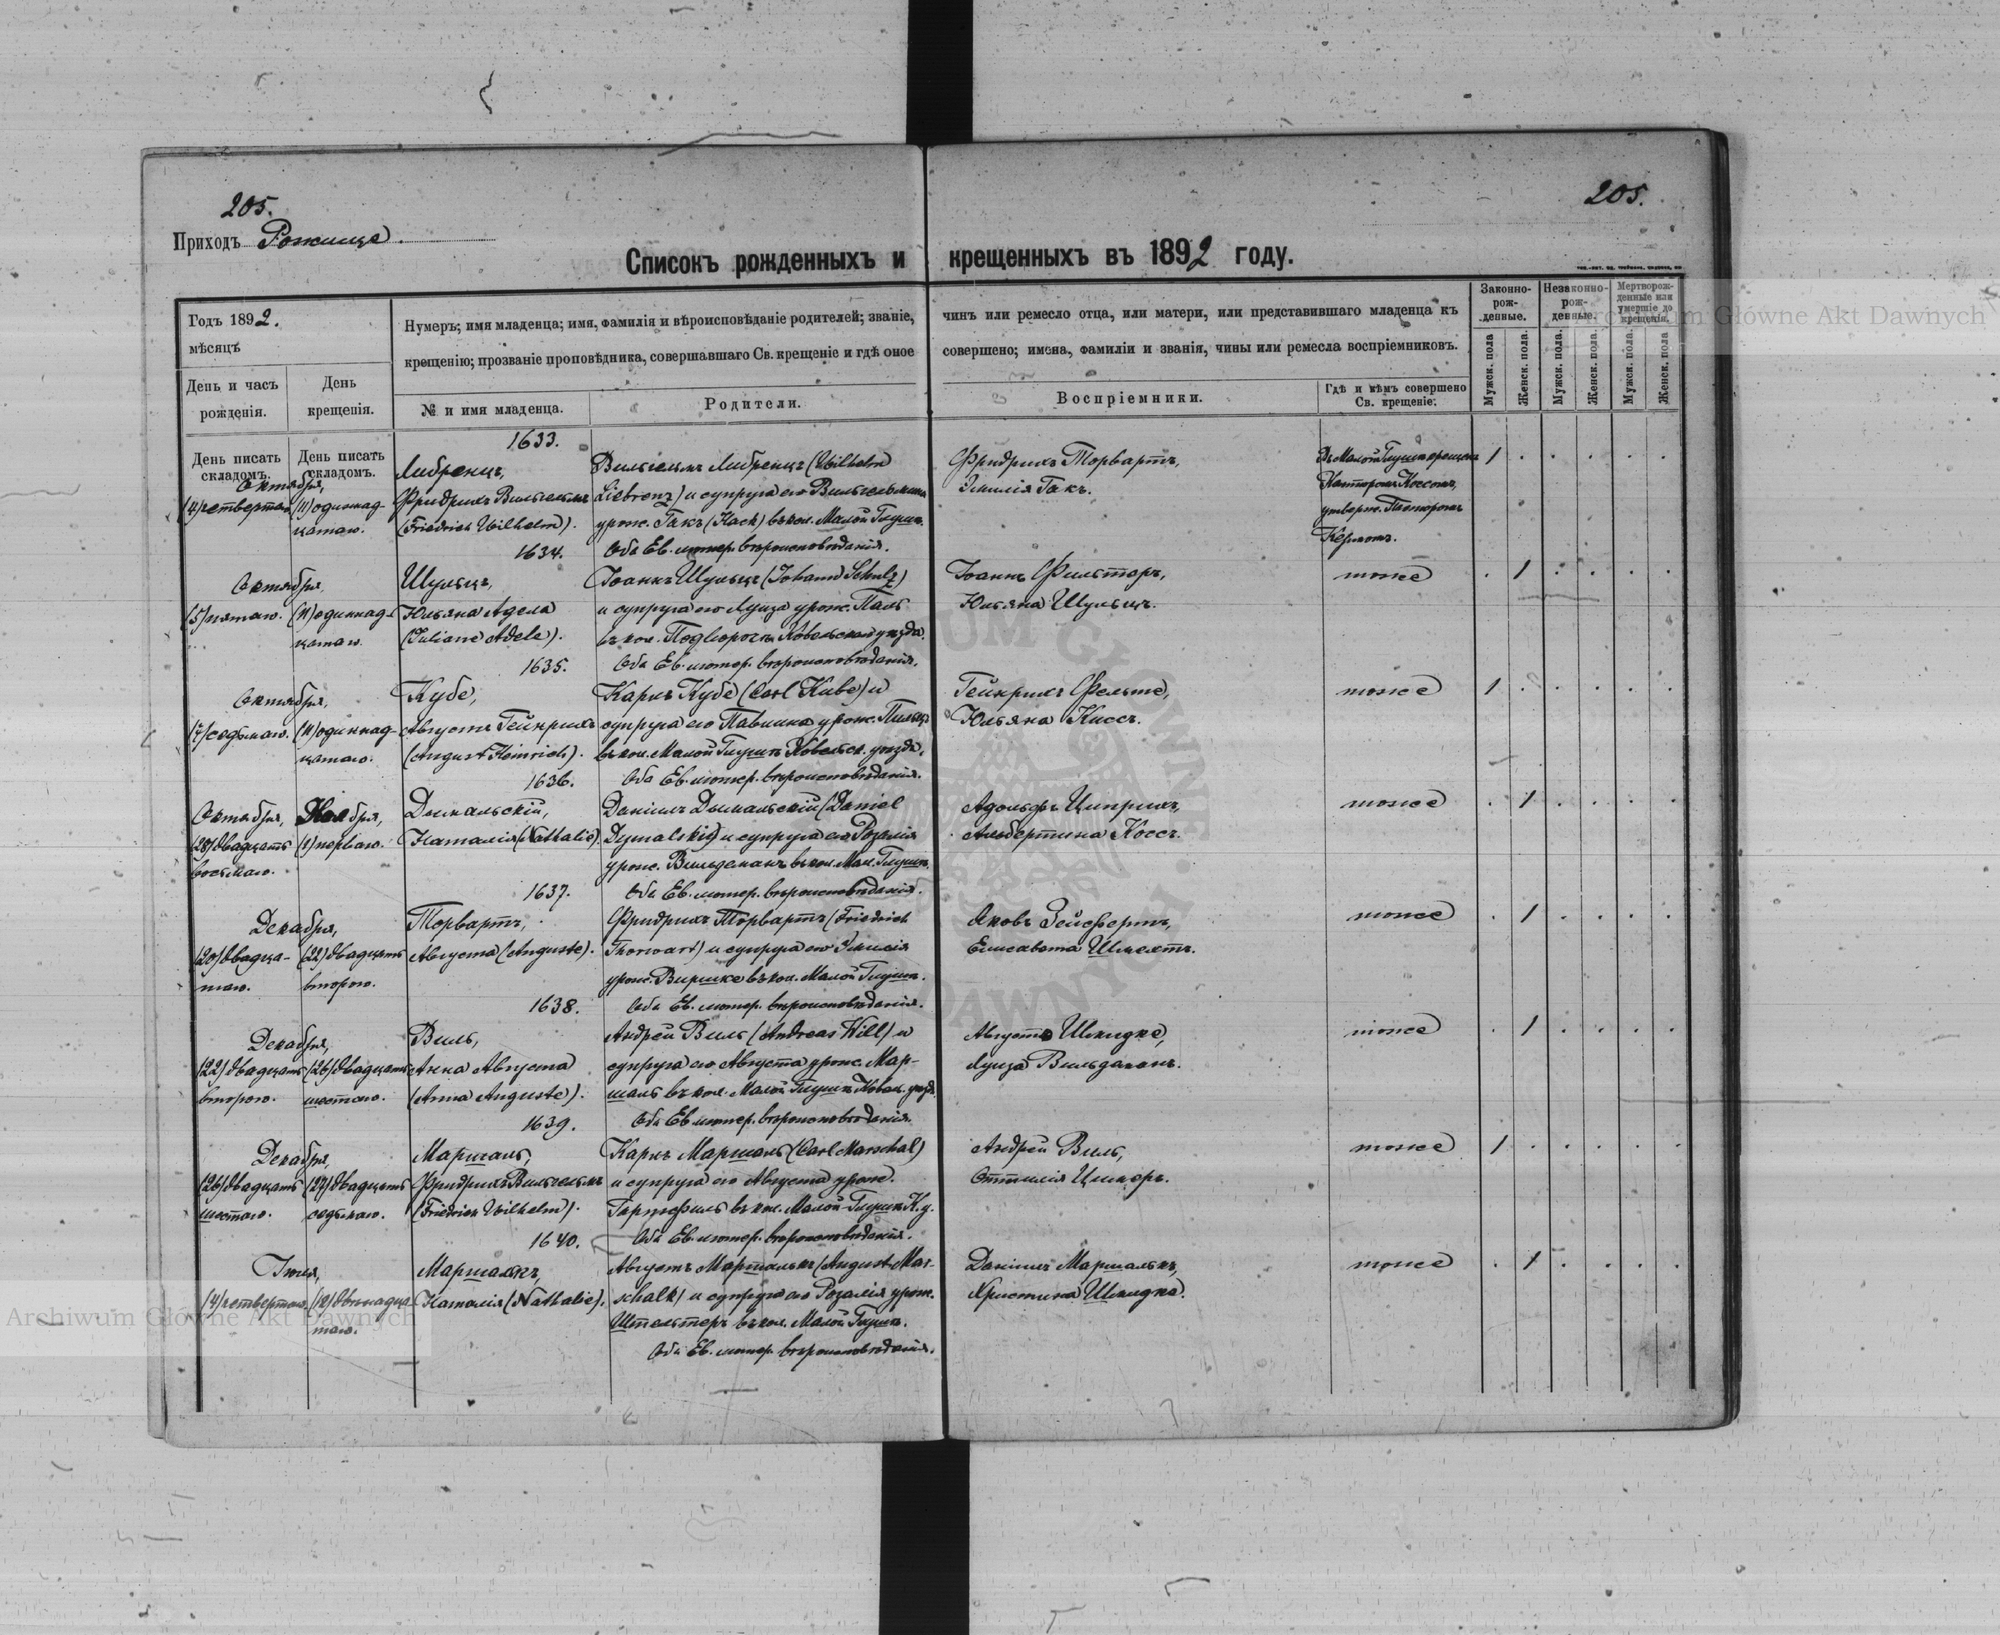 205.
205.
Приходъ Рожище.
Списокъ рожденныхъ и крещенныхъ въ 1892 году.
Годъ 1892.
мѣсяцъ
День и часъ рожденія.
День крещенія.
Нумеръ; имя младенца; имя, фамилія и вѣроисповѣданіе родителей; званіе, чинъ или ремесло отца, или матери, или представившаго младенца къ
крещенію; прозваніе проповѣдника, совершавшаго Св. крещеніе и гдѣ оное совершено; имена, фамиліи и званія, чины или ремесла воспріемниковъ.
№ и имя младенца.
Родители.
Воспріемники.
Гдѣ и кѣмъ совершено Св. крещеніе.
Законно-рож-денные.
Незаконно-рож-денные.
Мертворож-денные или умершіе до крещенія.
Мужск. пола
Женск. пола.
Мужск. пола.
Женск. пола.
Мужск. пола.
Женск. пола
День писать складомъ.
День писать складомъ.
1633.
Октября,
(4) четвертаго
(11) одиннад-
цатаго.
Либренцъ,
Фридрихъ Вильгельмъ
(Friedrich Wilhelm).
Вильгельмъ Либренцъ (Wilhelm
Liebrenz) и супруга его Вильгельмина
урожд. Гакъ (Hack) въ кол. Малой Глушѣ.
Оба Ев. лютер. вѣроисповѣданія.
Фридрихъ Торвартъ,
Эмилія Гакъ.
Въ Малой Глушѣ крещенъ
Канторомъ Коссомъ,
утвержд. Пасторомъ
Кермомъ.
1
1634.
Октября,
(5) пятаго.
(11) одиннад-
цатаго.
Шульцъ,
Юльяна Адела
(Juliane Adele).
Іоаннъ Шульцъ (Johann Schulz)
и супруга его Луиза урожд. Паль
въ кол. Ковельскаго уѣзда.
Оба Ев. лютер. вѣроисповѣданія.
Іоаннъ Фильтеръ,
Юльяна Шульцъ.
тоже
1
1635.
Октября,
(7) седьмаго.
(11) одиннад-
цатаго.
Кубе,
Августъ Гейнрихъ
(August Heinrich).
Карлъ Кубе (Carl Kube) и
супруга его Павлина урожд.
въ кол. Малой Глушѣ Ковельск. уѣзда.
Оба Ев. лютер. вѣроисповѣданія.
Гейнрихъ Фельте,
Юльяна Киссъ.
тоже
1
1636.
Октября,
Ноября,
(28) двадцать
восьмаго.
(1) перваго.
Дымальскій,
Наталія (Nathalie).
Даніилъ Дымальскій (Daniel
Dymalski) и супруга его Розалія
урожд. Вильдеманъ въ кол. Мал. Глушѣ.
Оба Ев. лютер. вѣроисповѣданія.
Адольфъ Циприхъ,
Альбертина Коссъ.
тоже
1
1637.
Декабря,
(20) двадца-
таго.
(22) двадцать
втораго.
Торвартъ,
Августа (Auguste).
Фридрихъ Торвартъ (Friedrich
Thorwart) и супруга его Эмилія
урожд. Виршке въ кол. Малой Глушѣ.
Оба Ев. лютер. вѣроисповѣданія.
Яковъ Зейфертъ,
Елисавета Шмехтъ.
тоже
1
1638.
Декабря,
(22) двадцать
втораго.
(26) двадцать
шестаго.
Виль,
Анна Августа
(Anna Auguste).
Андрей Виль (Andreas Will) и
супруга его Августа урожд. Мар-
шаль въ кол. Малой Глушѣ Ковел. уѣзда.
Оба Ев. лютер. вѣроисповѣданія.
Августъ Шмидке,
Луиза Вильдеманъ.
тоже
1
1639.
Декабря,
(26) двадцать
шестаго.
(27) двадцать
седьмаго.
Маршаль,
Фридрихъ Вильгельмъ
(Friedrich Wilhelm).
Карлъ Маршаль (Carl Marschal)
и супруга его Августа урожд.
въ кол. Малой Глушѣ К. у.
Оба Ев. лютер. вѣроисповѣданія.
Андрей Виль,
Оттилія Цимеръ.
тоже
1
1640.
Іюля,
(4) четвертаго
(12) двѣнадца-
таго.
Маршалкъ,
Наталія (Nathalie).
Августъ Маршалькъ (August Mar-
schalk) и супруга его Розалія урожд.
Штельтеръ въ кол. Малой Глушѣ.
Оба Ев. лютер. вѣроисповѣданія.
Даніилъ Маршалькъ,
Христина Шмидке.
тоже
1
Archiwum Główne Akt Dawnych
Archiwum Główne Akt Dawnych